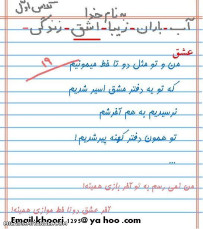 به نام خدا
کلاس اول
آب - باران - زیبا - آشق - زندگی -
عشق
۱۹
من و تو مثل دو تا خط میمونیم
که تو یه دفتر عشق اسیر شدیم
نرسیدیم به هم آخرشم
تو همون دفتر کهنه پیر شدیم!
...
من نمی رسم به تو آخر بازی همینه!
آخر عشق دو تا خط موازی همینه!
Email:khoori_1295@yahoo.com